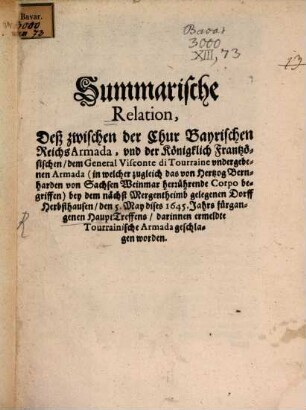 Bavar.
3000
XIII, 73
Bavar.
3000
XIII, 73
Summarische
Relation,
Deß zwischen der Chur Bayrischen
Reichs Armada, vnd der Königklich Frantzö-
sischen / dem General Visconte di Tourraine vndergebe-
nen Armada (in welcher zugleich das von Hertzog Bern-
harden von Sachsen Weinmar herrührende Corpo be-
griffen) bey dem nächst Mergentheimb gelegenen Dorff
Herbsthausen / den 5. May dises 1645. Jahrs fürgan-
genen Haupt Treffens / darinnen ermeldte
Tourrainische Armada geschla-
gen worden.